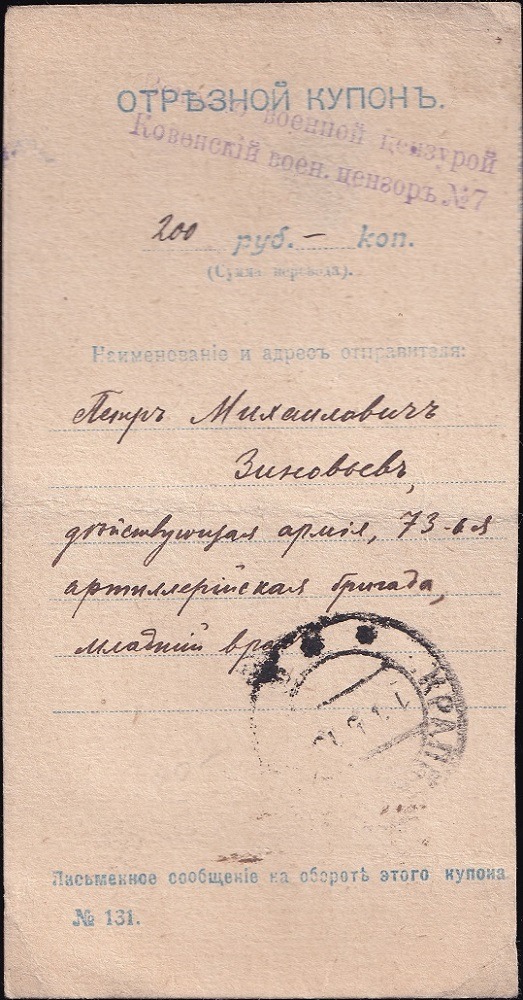 ОТРѢЗНОЙ КУПОНЪ.
военной цензурой
Ковенскій воен. цензоръ №7
200 руб. — коп.
(Сумма перевода).
Наименованіе и адресъ отправителя:
Петръ Михаиловичъ
Зиновьевъ,
дѣйствующая армія, 73-ья
артиллерійская бригада,
младшій врачъ
Письменное сообщеніе на оборотѣ этого купона
№ 131.